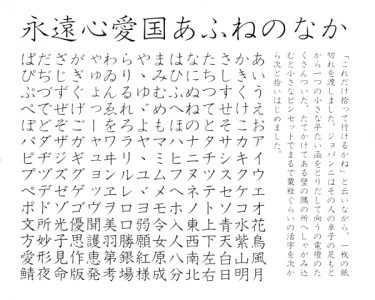 永遠心愛国あふねのなか
あいうえおアイウエオ花鳥風月
かきくけこカキクケコ水紫山明
さしすせそサシスセソ青天白日
たちつてとタチツテト上下左右
なにぬねのナニヌネノ東西南北
はひふへほハヒフヘホ人入八分
まみむめもマミムメモ女原成
や、ゆ。よヤユヨ弱願紅様
らりるれろラリルレロ勝銀場
わゐんゑをワヰンヱヲ美羽第考
ゃゅょっーャュョッヴ聞護恵発
がぎぐげごガギグゲゴ優思作版
ざじずぜぞザジズゼゾ光子見命
だぢづでどダヂヅデド妙形夜
ぱぴぷぺぽパピプペポ文方愛鯖
「これだけ拾って行けるかね」と云いながら、一枚の紙
切れを渡しました。ジョバンニはその人の卓子の足もと
から一つの小さな平たい函をとりだして向うの電燈のた
くさんついた、たてかけてある壁の隅の所へしゃがみ込
むと小さなピンセットでまるで粟粒ぐらいの活字を次か
ら次と拾いはじめました。